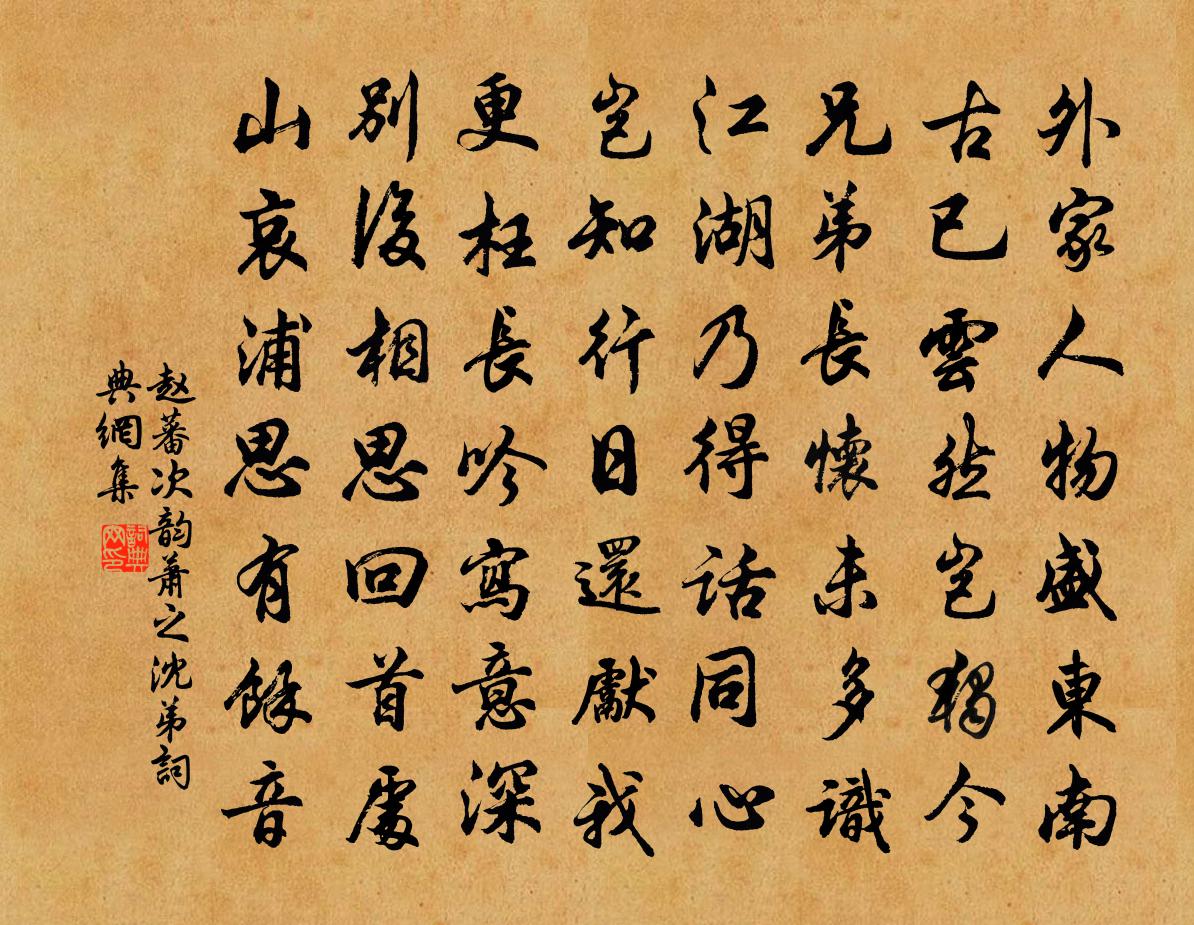 外家人物盛東南
古已雲然豈獨今
兄弟長懷未多識
江湖乃得話同心
豈知行日還獻我
更枉長吟寫意深
別後相思回首處
山哀浦思有餘音
赵蕃次韵蕭之沈弟詞
典網集
詞典
网印